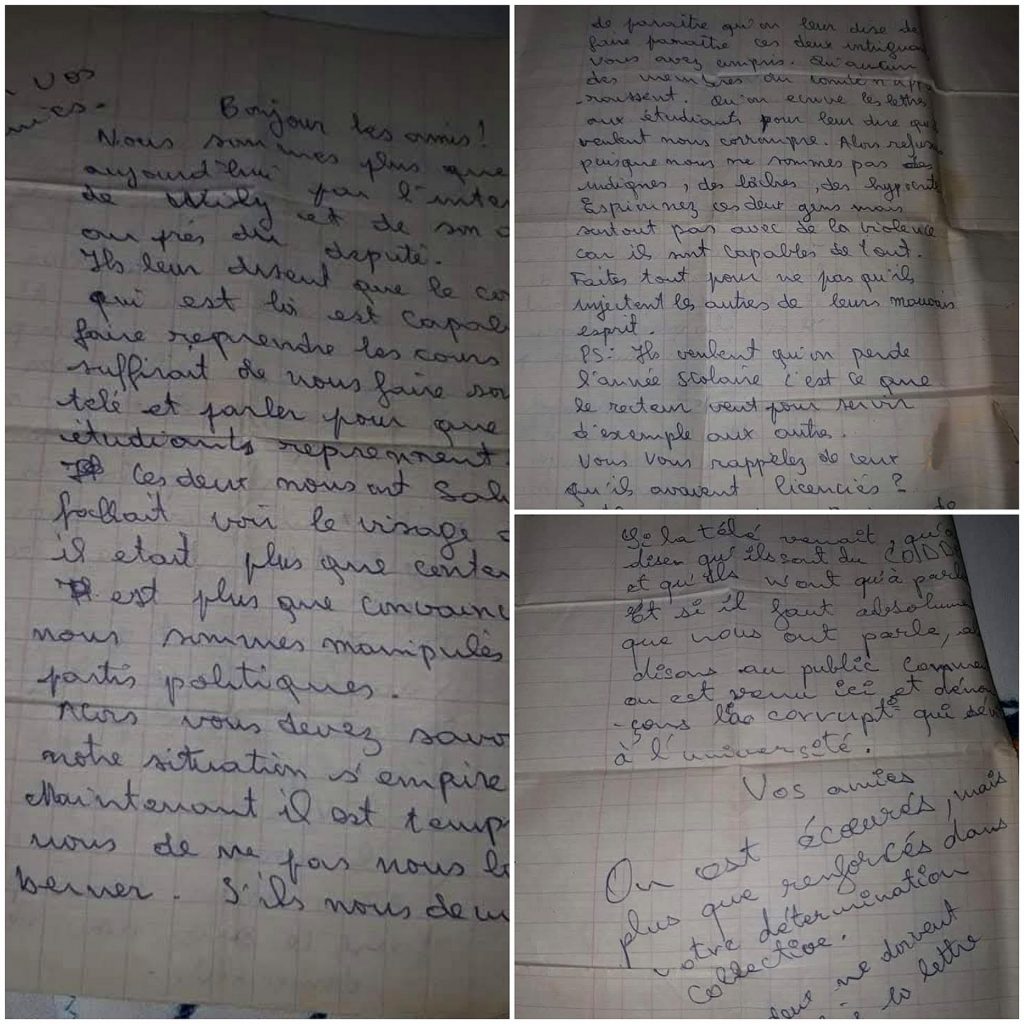 vos
Bonjour les amis!
Nous sommes plus que
aujourd'hui par l'inter
de Wily et de son
auprés du deputé.
Ils leur disent que le co
qui est là est capab
faire reprendre les cours
suffirait de nous faire so
télé et parler pour que
étudiants reprennent.
Ces deux nous ont Sal
fallait voir le visage
il etait plus que conten
est plus que convainc
nous sommes manipulés
partis politiques.
Alors vous devez savo
notre situation s'empire
Maintenant il est temp
nous de ne pas nous l
berner. S'ils nous dem
de paraître qu'on leur dise de
faire paraître ces deux intrigua
vous avez compris. Qu'aucun
des membres du comité n'app
-roussent. Qu'on ecrive les lettres
aux étudiants pour leur dire qu
veulent nous corrompre. Alors refus
puisque nous ne sommes pas des
indignes, des lâches, des hypocrite
Espionnez ces deux gens mais
surtout pas avec de la violence
car ils sont capables de tout.
Faites tout pour ne pas qu'ils
injectent les autres de leurs mauvais
esprit.
PS: Ils veulent qu'on perde
l'année scolaire c'est ce que
le recteur veut pour servir
d'exemple aux autres.
Vous vous rappelez de ceux
qu'ils avaient licenciés?
Si la télé venait, qu'o
disen qu'ils sont du CODD
et qu'ils n'ont qu'à parl
Et si il faut absolume
que nous ont parle, a
disons au public comme
on est venu ici et déno
-çons la corrupt° qui sev
à l'université.
Vos amies
On est écoeurés, mais
plus que renforcés dans
votre détermination
collective.
ne doivent
la lettre